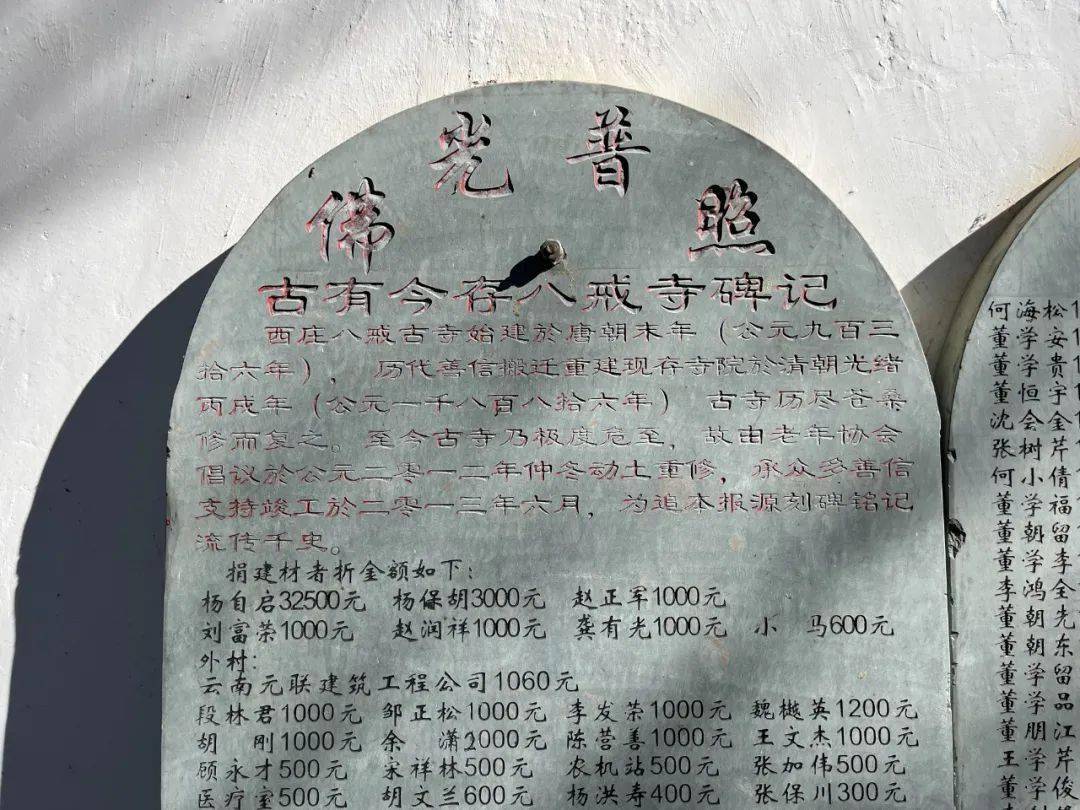 佛光普照
古有今存八戒寺碑记
西庄八戒古寺始建於唐朝末年（公元九百三
拾六年），历代善信搬迁重建现存寺院於清朝光绪
丙戌年（公元一千八百八拾六年）古寺历尽苍桑
修而复之。至今古寺乃极度危至，故由老年协会
倡议於公元二零一二年仲冬动土重修，承众多善信
支持竣工於二零一三年六月，为追本报源刻碑铭记
流传千史。
捐建材者折金额如下：
杨自启32500元 杨保胡3000元 赵正军1000元
刘富荣1000元 赵润祥1000元 龚有光1000元 小 马600元
外村：
云南元联建筑工程公司1060元
段林君1000元 邹正松1000元 李发荣1000元 魏樾英1200元
胡 刚1000元 余 潇2000元 陈营善1000元 王文杰1000元
顾永才500元 宋祥林500元 农机站500元 张加伟500元
医疗室500元 胡文兰600元 杨洪寿400元 张保川300元
何海松1
董学安1
董学贵1
董恒宇1
沈会金1
张树芹
何小倩
董学福
董朝留
董学李
李鸿全
董朝先
董朝东
董学留
董学品
董朋江
王学芹
董学俊